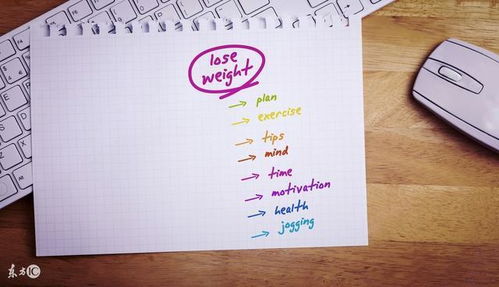 lose
weight
→ plan
→ exercise
→ tips
→ mind
→ time
→ motivation
→ health
→ jogging
东方IC